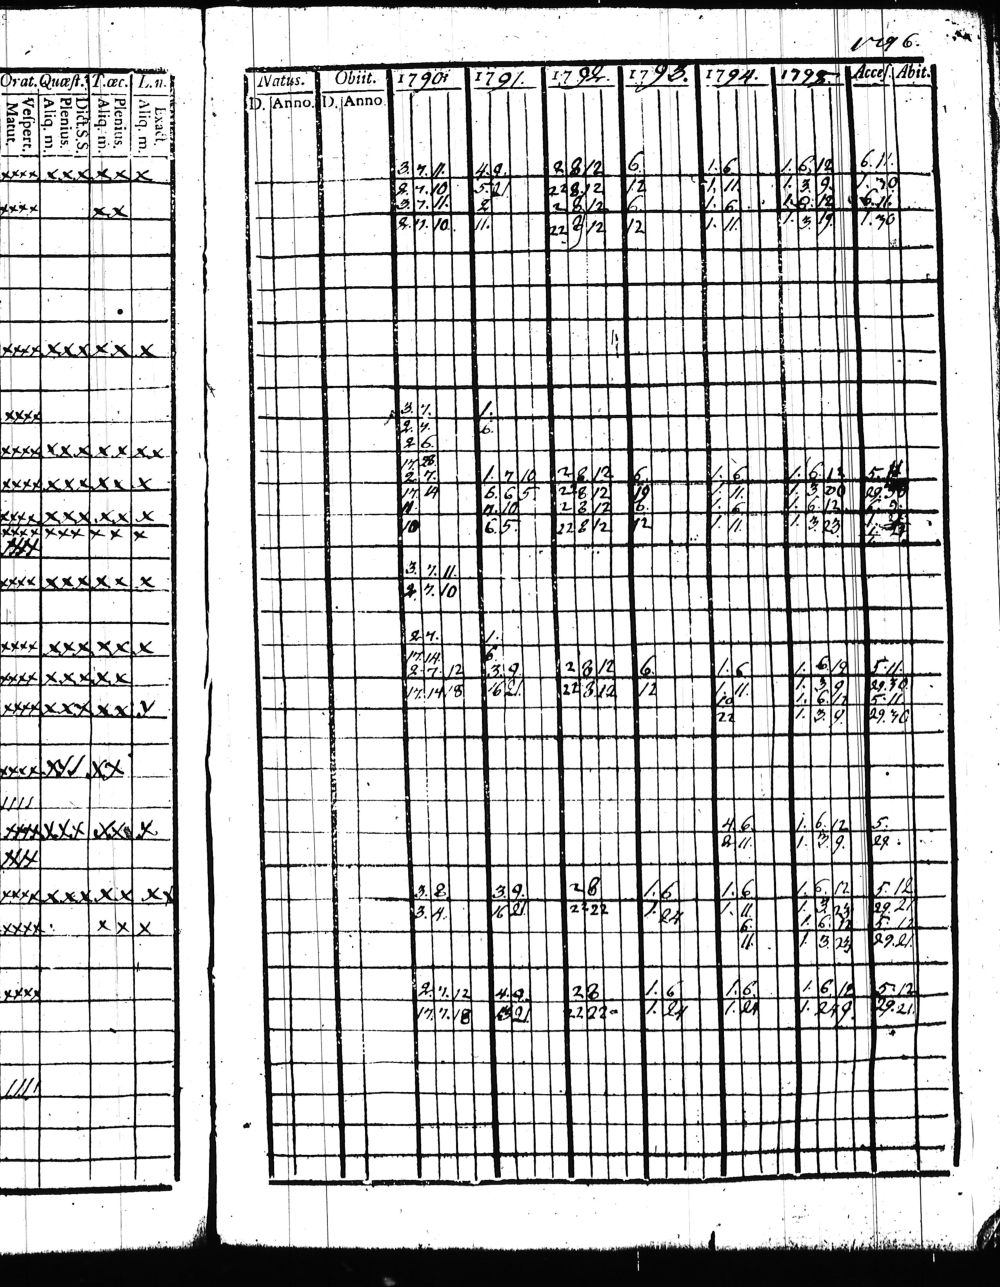 1796.
Orat. Quæst. T.æc. L.n. Natus. Obiit. 1790 1791. 1792. 1793. 1794. 1795 Accef. Abit.
Matut. Vefpert. Aliq. m. Plenius. Dict.S.S. Aliq. m. Plenius. Aliq. m. Exact. D. Anno. D. Anno
xxxx xxx xx x 3.7.11. 4.9. 2 8 12 6. 1. 6 1. 6. 12 6.11.
2.7.10 5.21 22 8.12 12 1. 11. 1. 3 9. 1. 30
xxxx xx 3.7.11. 2 8 12 6. 1. 6 6.11
2.7.10 11. 22 8 12 12 1. 11. 1. 3 19. 1. 30
xxxx xxx xx x
xxxx 3.7. 1.
2.7. 6.
xxxx xxx xx xx 2 6.
17.28
xxxx xxx xx x 2 7. 1. 7 10 2 8 12 6. 1. 6 1. 6. 12
17.14 6. 6 5. 8 12 19 1. 11. 1. 3 20
xxxx xxx xx x 11 7.10 2 8 12 6. 1. 6 1. 6 12
xxxx xxx xx x 10 6.5. 22 8 12 12 1. 11. 1. 3.23.
xxxx xxx xx x 3. 7. 11.
2. 7. 10
xxxx xxx xx x 2 7. 1.
17.14. 6.
xxxx xxx xx 2. 7. 12 3.9. 2 8 12 6. 1. 6 1. 6. 12 5.11.
17.14.18 16 21. 22 8.12 12 1. 11. 1. 3 9 29.30.
xxxx xxx xx x 10 1. 6. 12 5.11.
22 1. 3. 9. 29.30
xxxx xxx xx
////
xxxx xxx xxx x 4. 6. 1. 6. 12 5.
2. 11. 1. 3 9. 29.
xxxx xxx xx xx 3. 8. 3 9. 2 8 1. 6 1. 6 1. 6. 12 5. 12
3. 4. 16 21. 22 22 1. 24 1. 11. 1. 3 23 29.21.
xxxx xx x 6. 1. 6. 12 5. 12
11. 1. 3. 23 29.21.
xxxx 2. 7. 12 4.9. 2 8 1. 6 1. 6. 1. 6 12 5.12
17.7.18 22 22 1. 24 1. 24 1. 24 9 29.21.
////